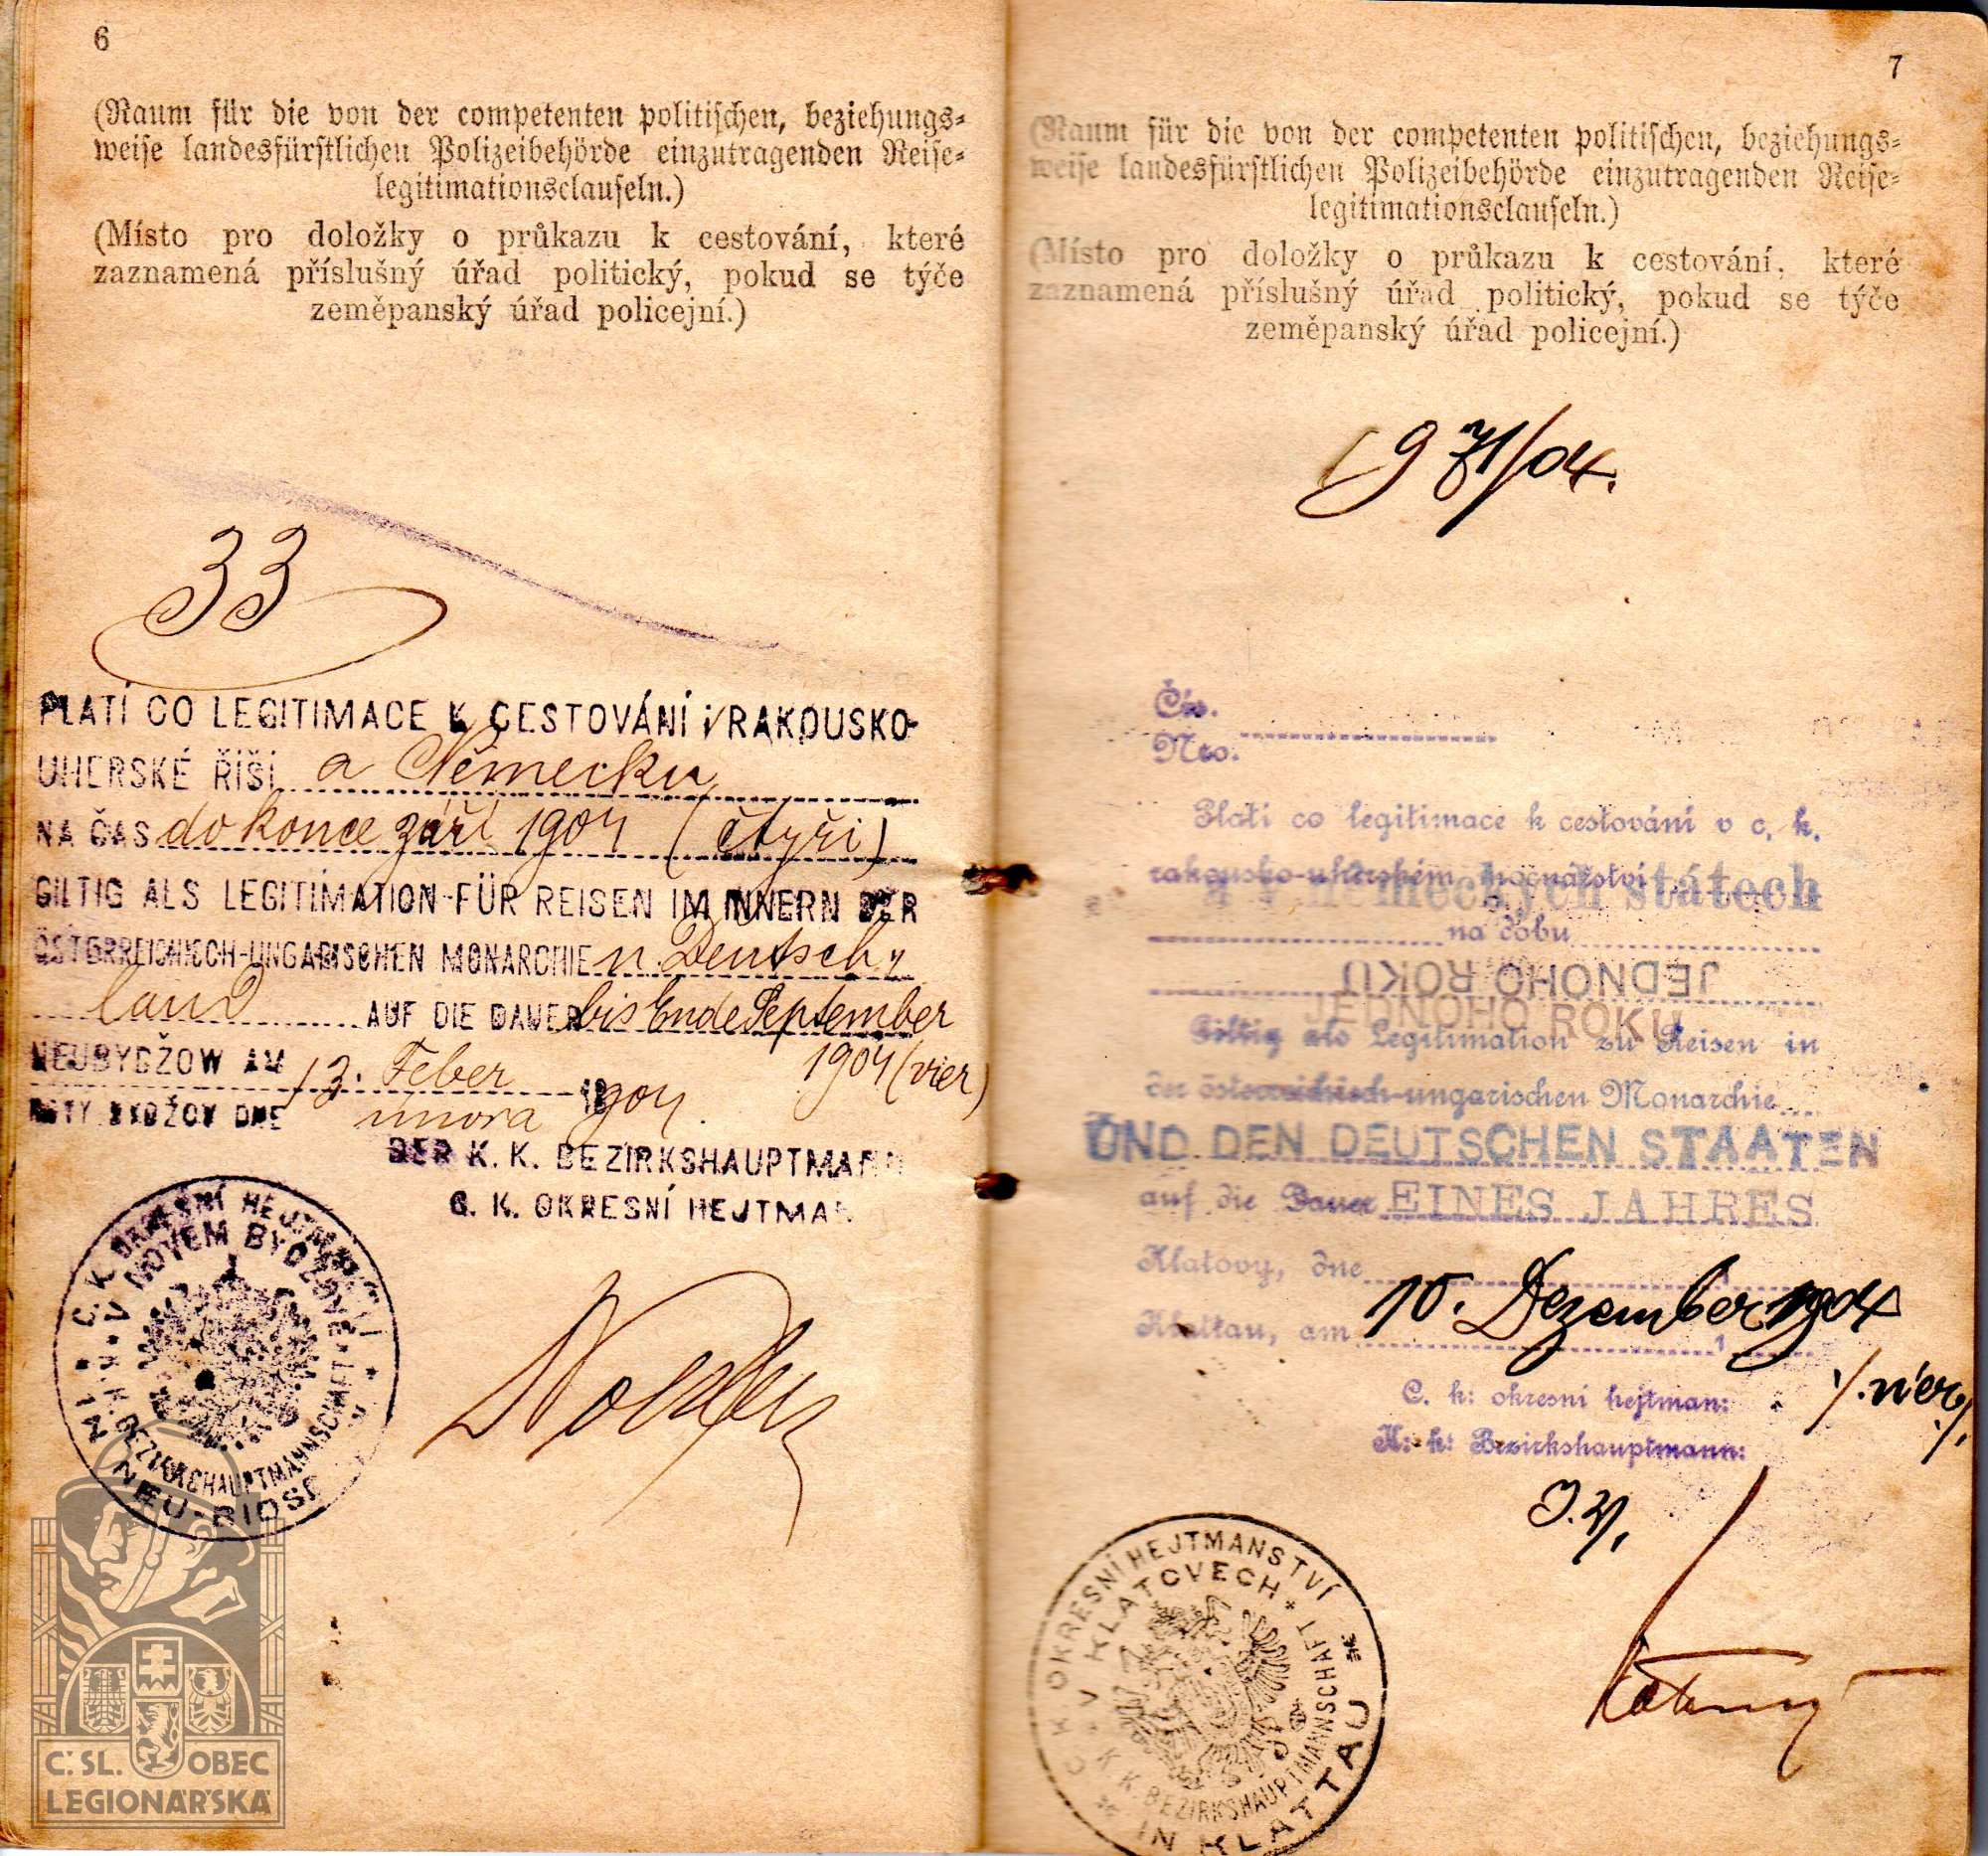 6
(Raum für die von der competenten politischen, beziehungs-
weise landesfürstlichen Polizeibehörde einzutragenden Reise-
legitimationsclauseln.)
(Místo pro doložky o průkazu k cestování, které
zaznamená příslušný úřad politický, pokud se týče
zeměpanský úřad policejní.)
33
PLATÍ CO LEGITIMACE K CESTOVÁNÍ V RAKOUSKO-
UHERSKÉ ŘÍŠI a Německu
NA ČAS do konce září 1904 (čtyři)
GILTIG ALS LEGITIMATION FÜR REISEN IM INNERN DER
ÖSTERREICHISCH-UNGARISCHEN MONARCHIE u. Deutsch-
land AUF DIE DAUER bis Ende September
1904 (vier)
NEUBYDŽOW AM 13. Feber 1904
DNE února
DER K. K. BEZIRKSHAUPTMANN
C. K. OKRESNÍ HEJTMAN
C. K. OKRESNÍ HEJTMANSTVÍ
V NOVÉM BYDŽOVĚ
K. K. BEZIRKSHAUPTMANNSCHAFT
IN NEU-BIDSCHOW
C.SL. OBEC
LEGIONÁŘSKÁ
7
(Raum für die von der competenten politischen, beziehungs-
weise landesfürstlichen Polizeibehörde einzutragenden Reise-
legitimationsclauseln.)
(Místo pro doložky o průkazu k cestování, které
zaznamená příslušný úřad politický, pokud se týče
zeměpanský úřad policejní.)
971/04.
Čís.
Nro.
Platí co legitimace k cestování v c. k.
rakousko-uherském mocnářství
a v německých státech
na dobu
JEDNOHO ROKU
JEDNOHO ROKU
Giltig als Legitimation zu Reisen in
der österreichisch-ungarischen Monarchie
UND DEN DEUTSCHEN STAATEN
auf die Dauer EINES JAHRES
Klatovy, dne
Klattau, am 10. Dezember 1904
/.vier/.
C. k: okresní hejtman:
K: k: Bezirkshauptmann:
I.V.
C K OKRESNÍ HEJTMANSTVÍ
V KLATOVECH
K K BEZIRKSHAUPTMANNSCHAFT
IN KLATTAU